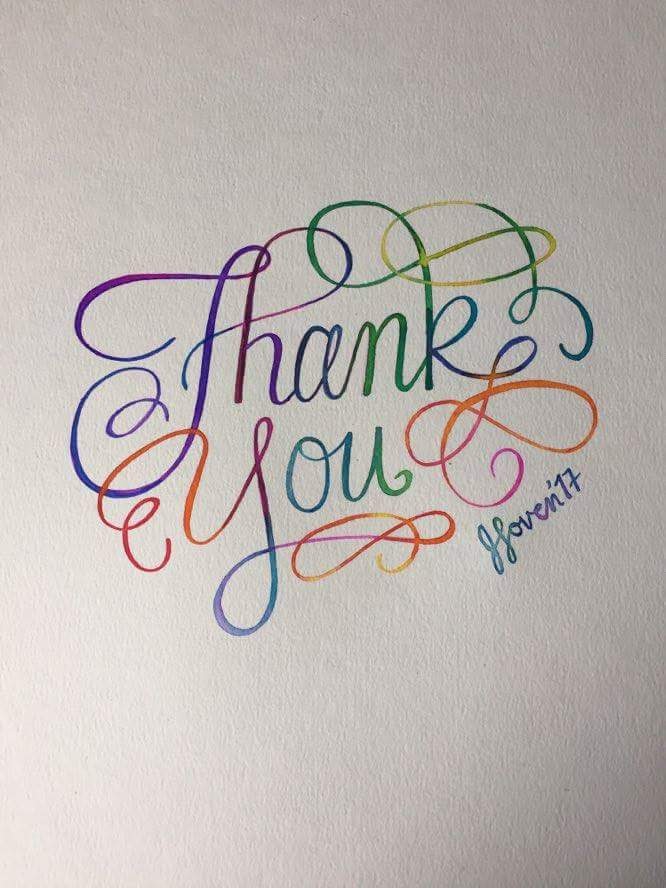 Thank
You
JJoven'17